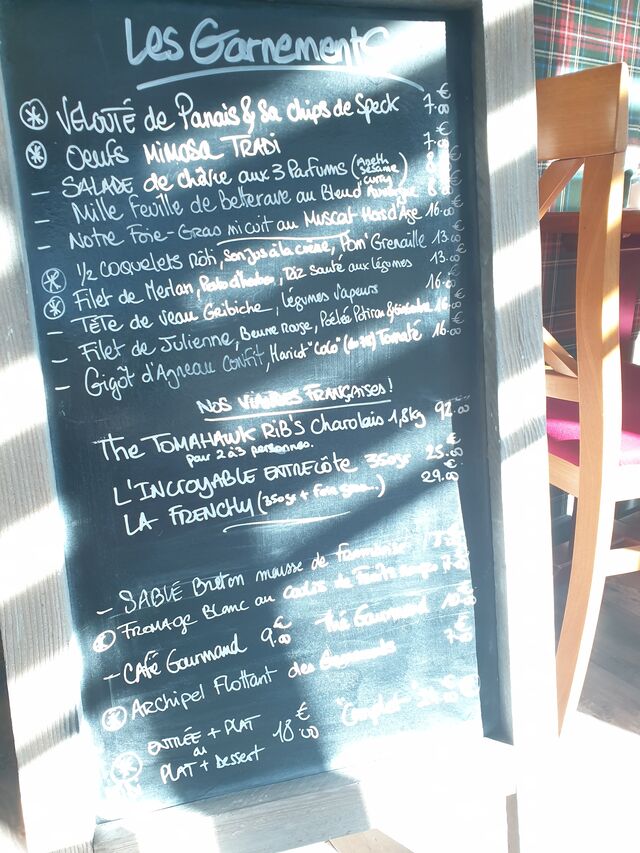 Les Garnements
* VELOUTÉ de Panais & sa chips de Speck 7.€
* OEufs MIMOSA TRADI 7.€
- SALADE de chèvre aux 3 Parfums (Aneth sésame curry) 8
- Mille Feuille de Betterave au Bleu d'Auvergne 8
- Notre Foie-Gras mi cuit au Muscat Hors d'Âge 16.00
* 1/2 COQUELETS Rôti, Son jus à la crème, Pom' Grenaille 13.€
* Filet de Merlan, Pesto d'herbes, Riz sauté aux légumes 13.€
- TÊTE de veau Gribiche, légumes vapeurs 16.€
- Filet de Julienne, Beurre Rouge, Poêlée Potiron & 16.€
- Gigôt d'Agneau Confit, Haricot "Coco" Tomaté 16.€
NOS VIANDES FRANÇAISES!
The TOMAHAWK RIB'S Charolais 1,8kg 92.€
pour 2 à 3 personnes.
L'INCROYABLE ENTRECÔTE 350gr 25.€
LA FRENCHY (350gr + Foie gras..) 29.00€
- SABLÉ Breton mousse de Framboise
* FROMAGE Blanc au coulis de Fruits rouges 7.€
- CAFé Gourmand 9.€00 Thé Gourmand 10.€
* ARCHIPEL Flottant des Garnements 7€
* ENTRÉE + PLAT
ou 18.€00 "Complet"
PLAT + Dessert